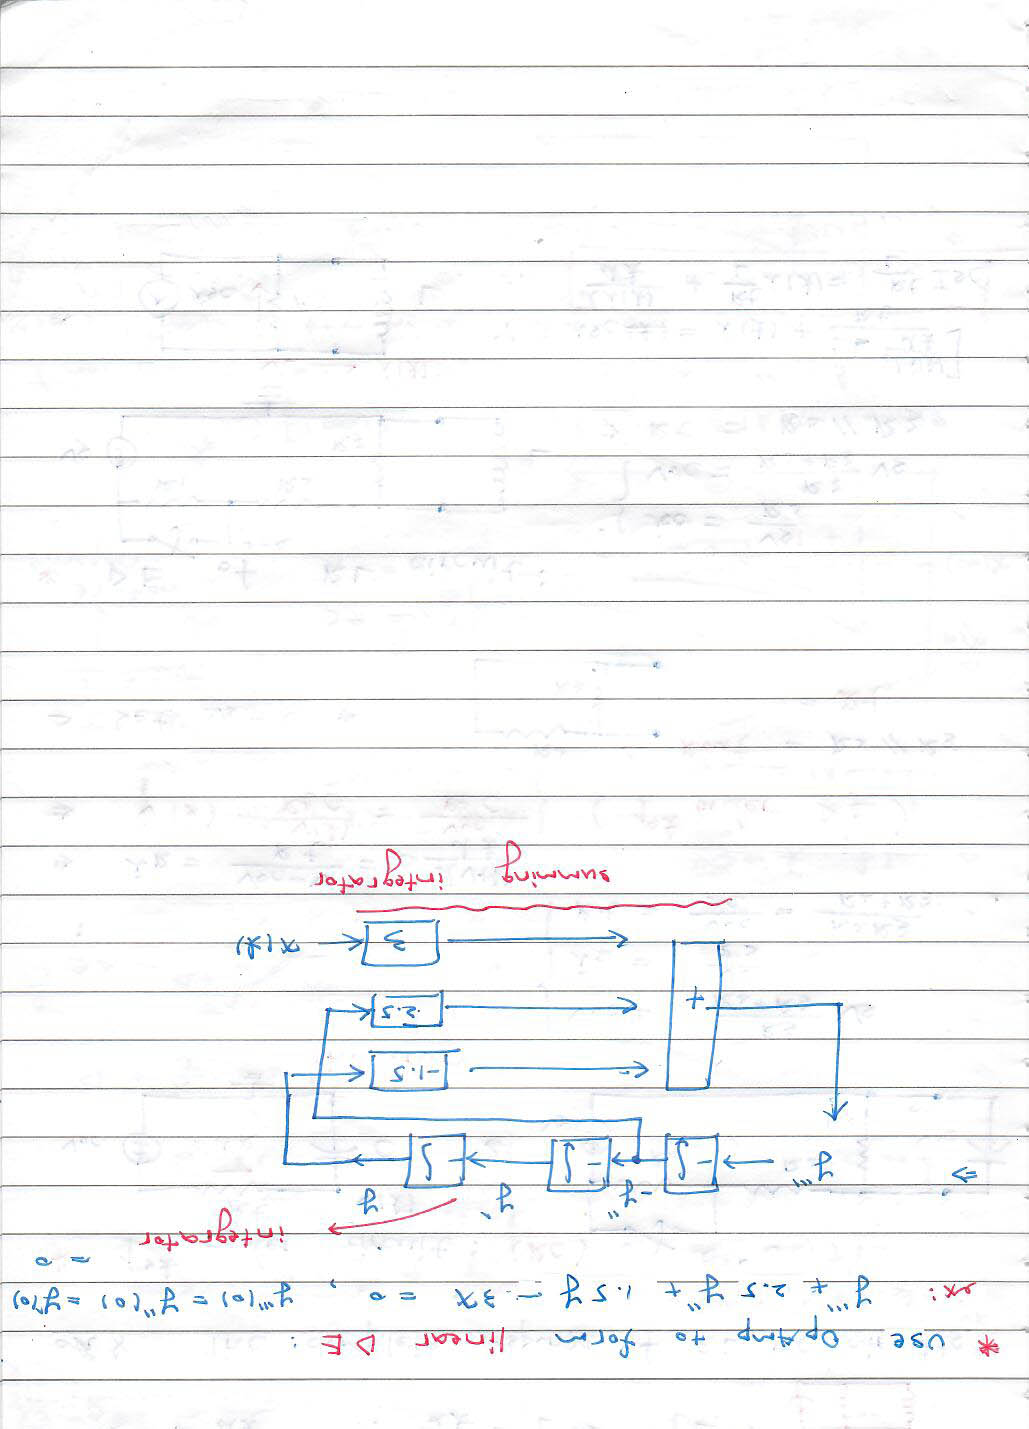 * use OpAmp to form linear DE :
ex: y''' + 2.5 y'' + 1.5 y - 3x = 0 , y'''(0) = y''(0) = y'(0)
= 0
integrator
⇒ y''' - ∫ -y'' - ∫ y' - ∫ y
-1.5
+ 2.5
3 x(t)
summing integrator